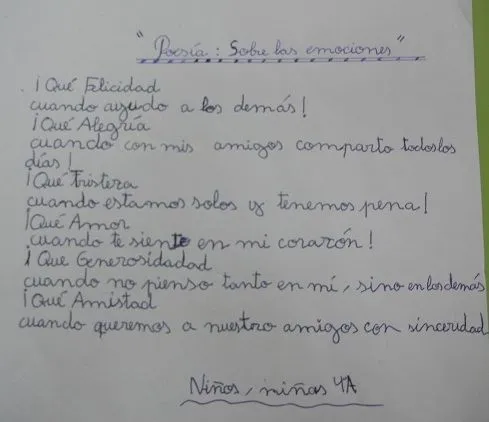 "Poesía: Sobre las emociones"
¡Qué Felicidad
cuando ayudo a los demás!
¡Qué Alegría
cuando con mis amigos comparto todos los
días!
¡Qué Tristeza
cuando estamos solos y tenemos pena!
¡Qué Amor
cuando te siente en mi corazón!
¡Que Generosidadad
cuando no pienso tanto en mí, sino en los demás
¡Qué Amistad
cuando queremos a nuestro amigos con sinceridad
Niños, niñas 4A